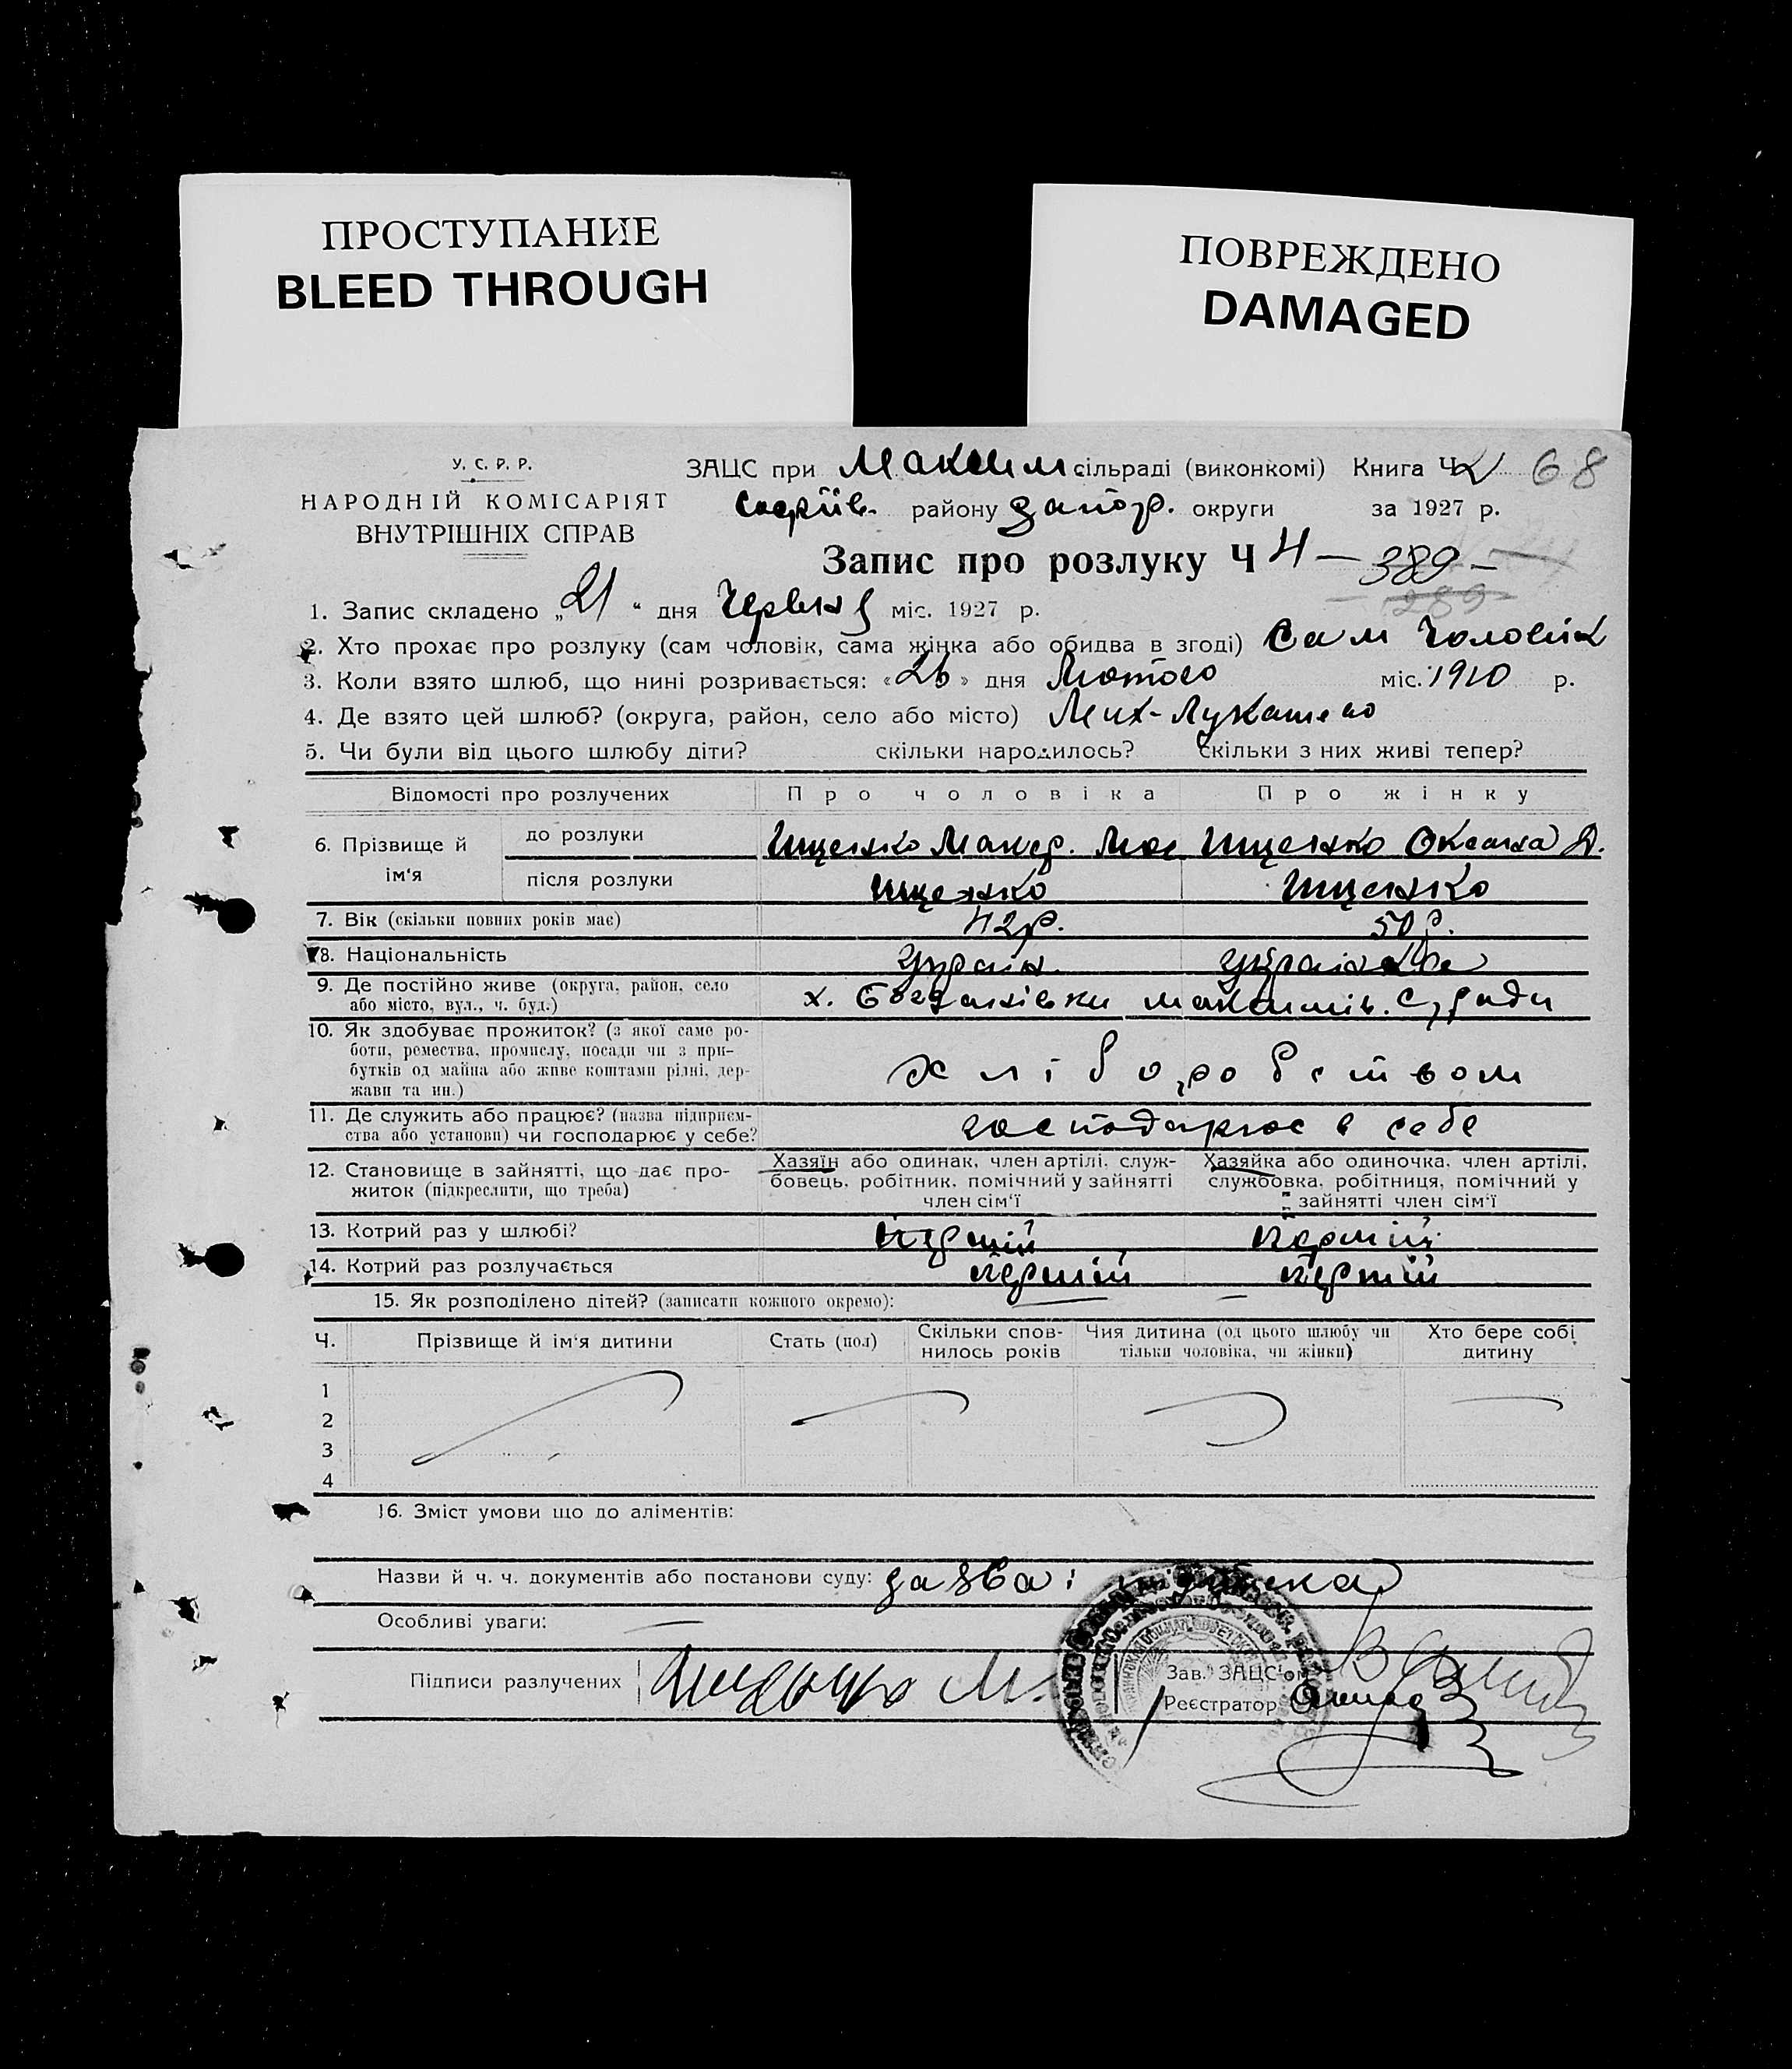 ПРОСТУПАНИЕ
BLEED THROUGH
ПОВРЕЖДЕНО
DAMAGED
У. С. Р. Р.
НАРОДНІЙ КОМІСАРІЯТ
ВНУТРІШНІХ СПРАВ
ЗАЦС при Максим сільраді (виконкомі) Книга Ч 2 68
Софіїв. району Запор. округи за 1927 р.
Запис про розлуку Ч 4 — 389 —
289
1. Запис складено „21“ дня Червня міс. 1927 р.
2. Хто прохає про розлуку (сам чоловік, сама жінка або обидва в згоді) Сам Чоловік
3. Коли взято шлюб, що нині розривається: «26» дня Лютого міс. 1910 р.
4. Де взято цей шлюб? (округа, район, село або місто) Мих-Лукашево
5. Чи були від цього шлюбу діти? скільки народилось? скільки з них живі тепер?
Відомості про розлучених Про чоловіка Про жінку
6. Прізвище й ім'я до розлуки Іщенко Іщенко Оксана Д.
після розлуки Іщенко Іщенко
7. Вік (скільки повних років має) 42р. 50р.
8. Національність україн. українка
9. Де постійно живе (округа, район, село або місто, вул., ч. буд.) х. Богданівки максимів. с/ради
10. Як здобуває прожиток? (з якої саме роботи, ремества, промислу, посади чи з прибутків од майна або живе коштами рідні, держави та ин.) хліборобством
11. Де служить або працює? (назва підприємства або установи) чи господарює у себе? господарює в себе
12. Становище в зайнятті, що дає прожиток (підкреслити, що треба) Хазяїн або одинак, член артілі, службовець, робітник, помічний у зайнятті член сім'ї Хазяйка або одиночка, член артілі, службовка, робітниця, помічний у зайнятті член сім'ї
13. Котрий раз у шлюбі? перший перший
14. Котрий раз розлучається перший перший
15. Як розподілено дітей? (записати кожного окремо):
Ч. Прізвище й ім'я дитини Стать (пол) Скільки сповнилось років Чия дитина (од цього шлюбу чи тільки чоловіка, чи жінки) Хто бере собі дитину
1
2
3
4
16. Зміст умови що до аліментів:
Назви й ч. ч. документів або постанови суду: заява і
Особливі уваги:
Підписи разлучених Іщенко М.
Зав. ЗАЦС'ом
Реєстратор